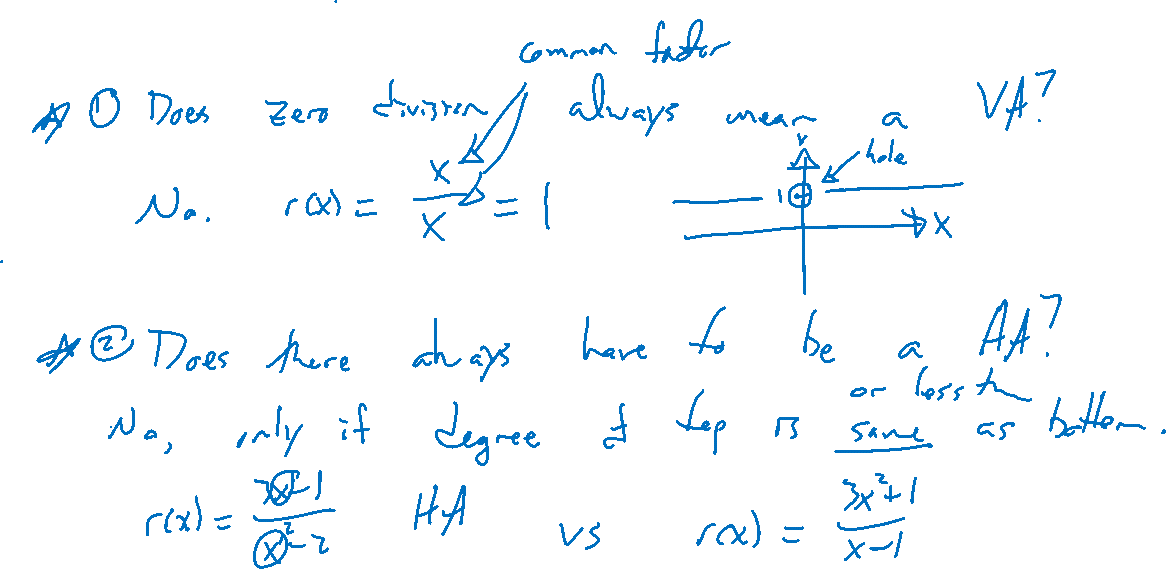 common factor
① Does zero division always mean a VA?
No. r(x) = x/x = 1
hole
1
x
② Does there always have to be a HA?
or less than
No, only if degree of top is same as bottom.
r(x) = 3x-1/x²-2 HA vs r(x) = 3x²+1/x-1